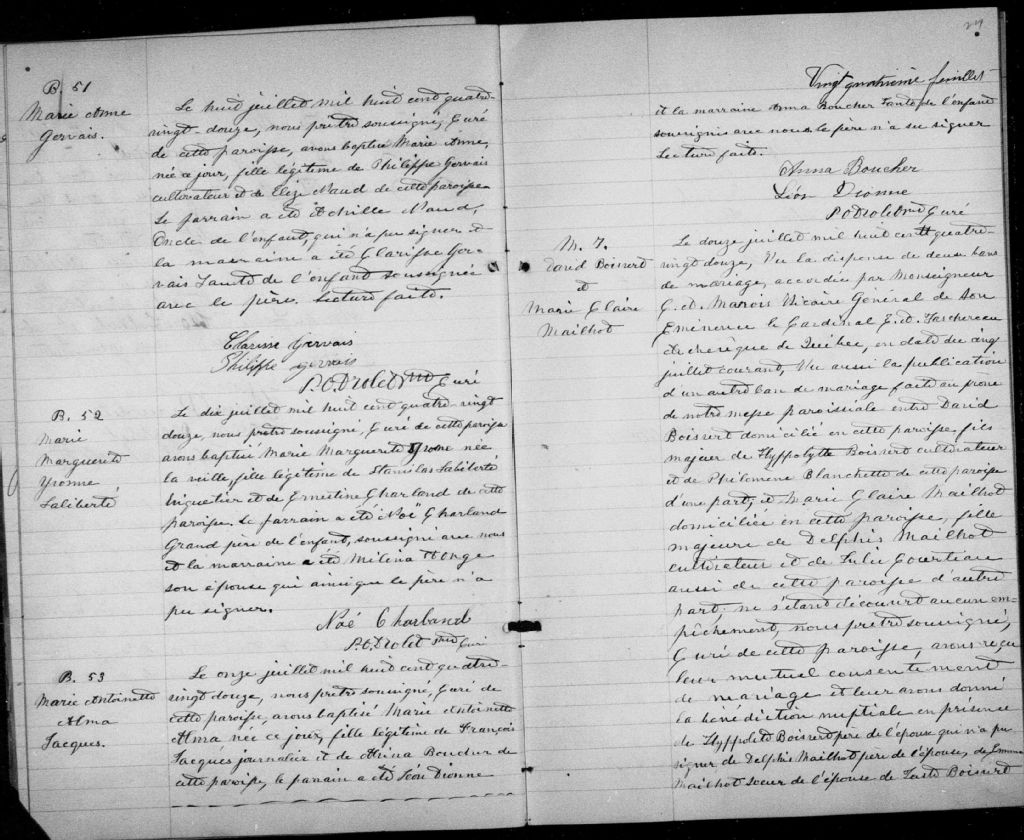 B. 51
Marie Anne
Gervais.
Le huit juillet mil huit cent quatre-
vingt-douze, nous prêtre soussigné, Curé
de cette paroisse, avons baptisé Marie Anne,
née ce jour, fille légitime de Philippe Gervais
cultivateur et de Eliza Naud de cette paroisse
Le parrain a été Achille Naud,
Oncle de l'enfant, qui n'a pu signer et
la marraine a été Clarisse Ger-
vais Tante de l'enfant soussignée
avec le père. Lecture faite.
Clarisse Gervais
Philippe Gervais
P.O. Drolet Ptre Curé
B. 52
Marie
Marguerite
Yvonne
Laliberté
Le dix juillet mil huit cent quatre-vingt
douze, nous prêtre soussigné, Curé de cette paroisse
avons baptisé Marie Marguerite Yvonne née
la veille, fille légitime de Stanislas Laliberté
briquetier et de Ernestine Charland de cette
paroisse. Le parrain a été Noé Charland
Grand père de l'enfant, soussigné avec nous
et la marraine a été Mélina
son épouse qui ainsi que le père n'a
pu signer.
Noé Charland
P.O. Drolet Ptre Curé
B. 53
Marie Antoinette
Alma
Jacques.
Le onze juillet mil huit cent quatre-
vingt douze, nous prêtre soussigné, Curé de
cette paroisse, avons baptisé Marie Antoinette
Alma née ce jour, fille légitime de François
Jacques journalier et de Boucher de
cette paroisse, le parrain a été Léon Dionne
24
Vingt quatrième feuillet
et la marraine Anna Boucher Tante de l'enfant
soussignés avec nous. le père n'a su signer
Lecture faite.
Anna Boucher
Léon Dionne
P.O. Drolet Ptre Curé
M. 7.
David Boisvert
et
Marie Claire
Mailhot
Le douze juillet mil huit cent quatre-
vingt douze, Vu la dispense de deux bans
de mariage, accordée par Monseigneur
C. A. Marois Vicaire Général de Son
Eminence le Cardinal E. A. Taschereau
Archevêque de Québec, en date du cinq
juillet courant, Vu aussi la publication
d'un autre ban de mariage faite au prône
de notre messe paroissiale entre David
Boisvert domicilié en cette paroisse, fils
majeur de Hyppolytte Boisvert cultivateur
et de Philomene Blanchette de cette paroisse
d'une part; et Marie Claire Mailhot
domiciliée en cette paroisse, fille
majeure de Delphis Mailhot
cultivateur et de
aussi de cette paroisse d'autre
part; ne s'étant découvert aucun em-
pêchement, nous prêtre soussigné,
Curé de cette paroisse, avons reçu
leur mutuel consentement
de mariage et leur avons donné
la bénédiction nuptiale en présence
de Hyppolite Boisvert père de l'époux qui n'a pu
signer de Delphis Mailhot père de l'épouse, de Emma
Mailhot soeur de l'épouse de Boisvert